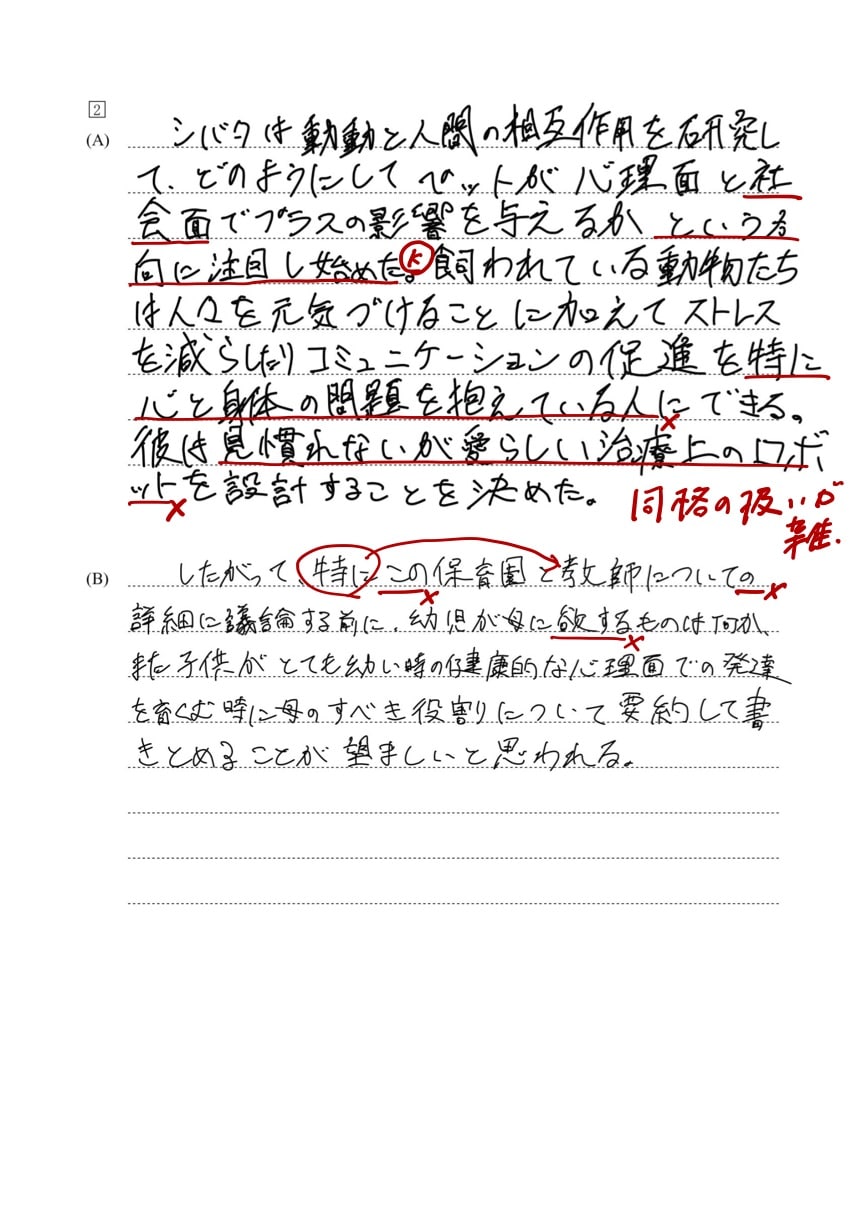 2
(A) シバタは動動と人間の相互作用を研究し
て、どのようにしてペットが心理面と社
会面でプラスの影響を与えるかという方
向に注目し始めた。K飼われている動物たち
は人々を元気づけることに加えてストレス
を減らしたりコミュニケーションの促進を特に
心と身体の問題を抱えている人にできる。
彼は見慣れないが愛らしい治療上のロボ
ットを設計することを決めた。
同格の扱いが
雑.
(B) したがって、特にこの保育園と教師についての
詳細に議論する前に、幼児が母に欲するものは何か、
また子供がとても幼い時の健康的な心理面での発達
を育くむ時に母のすべき役割りについて要約して書
きとめることが望ましいと思われる。